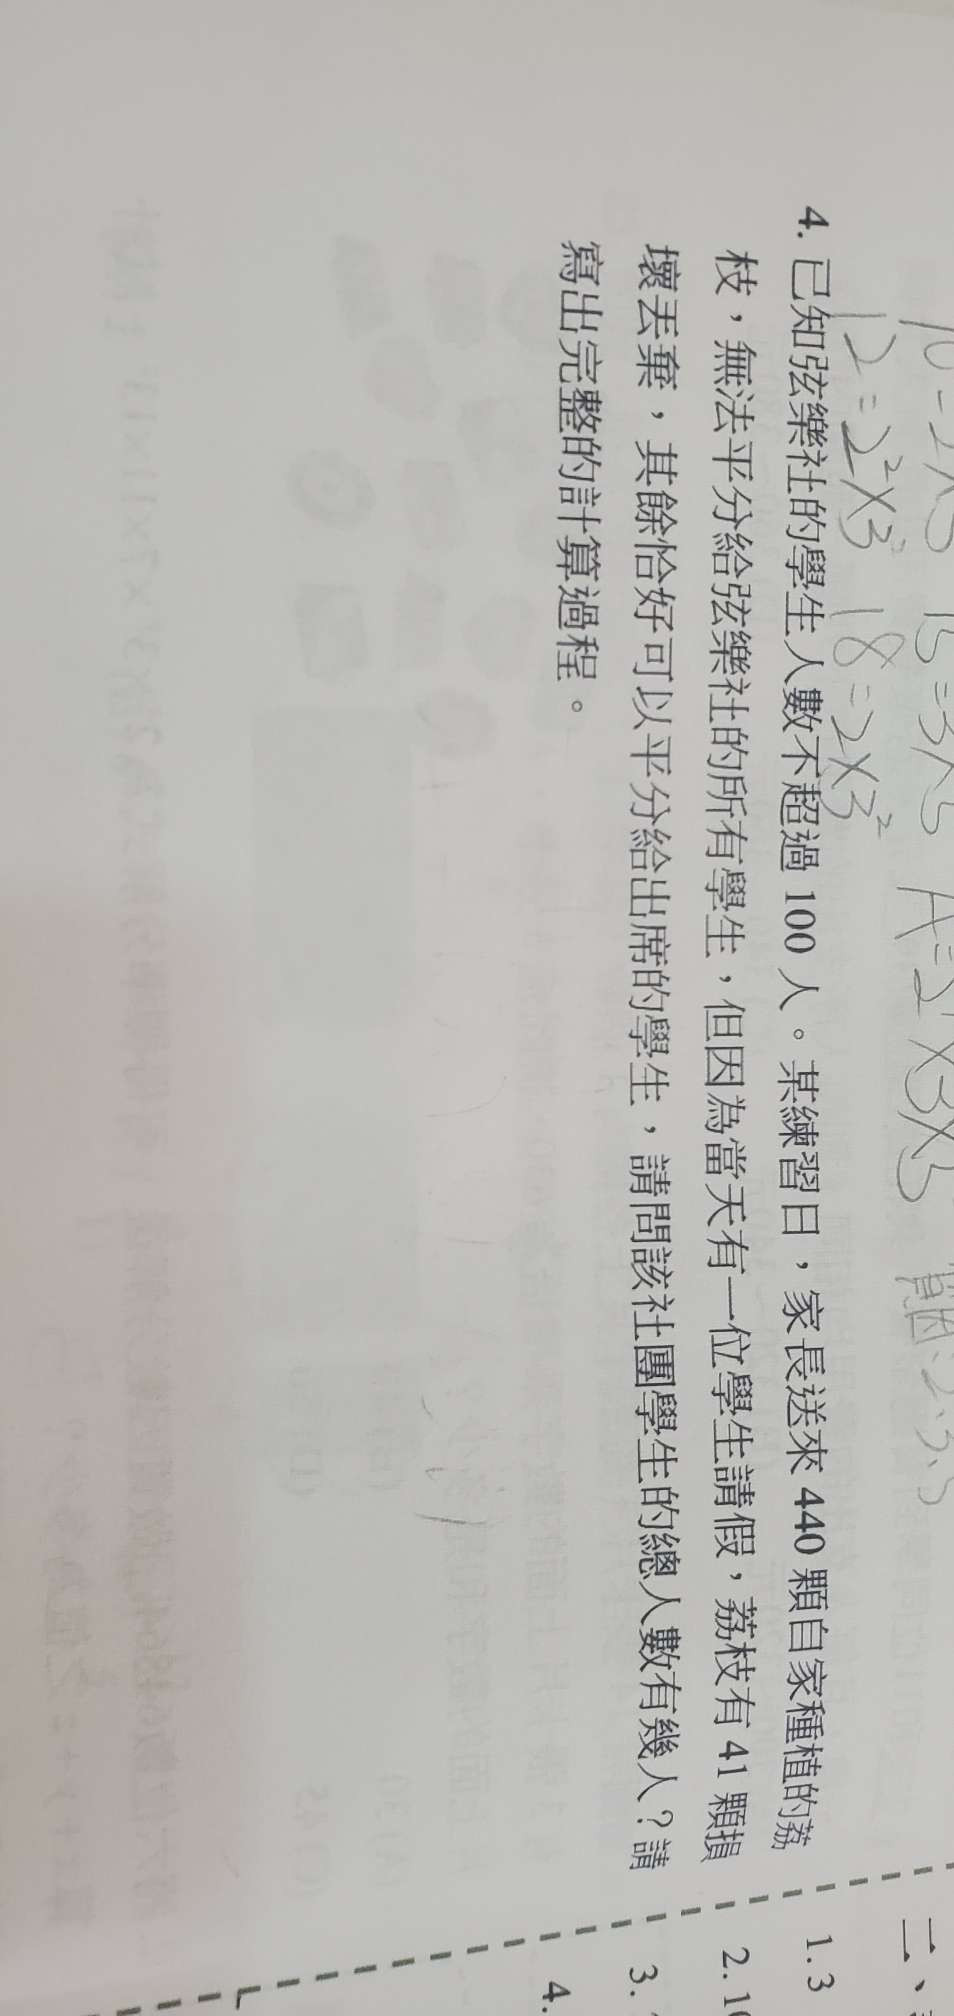 15=3×5 A=2×3×5
12=2²×3 18=2×3²
4. 已知弦樂社的學生人數不超過 100 人。某練習日，家長送來 440 顆自家種植的荔
枝，無法平分給弦樂社的所有學生，但因為當天有一位學生請假，荔枝有 41 顆損
壞丟棄，其餘恰好可以平分給出席的學生，請問該社團學生的總人數有幾人？請
寫出完整的計算過程。
二、
1. 3
2. 1
3.
4.